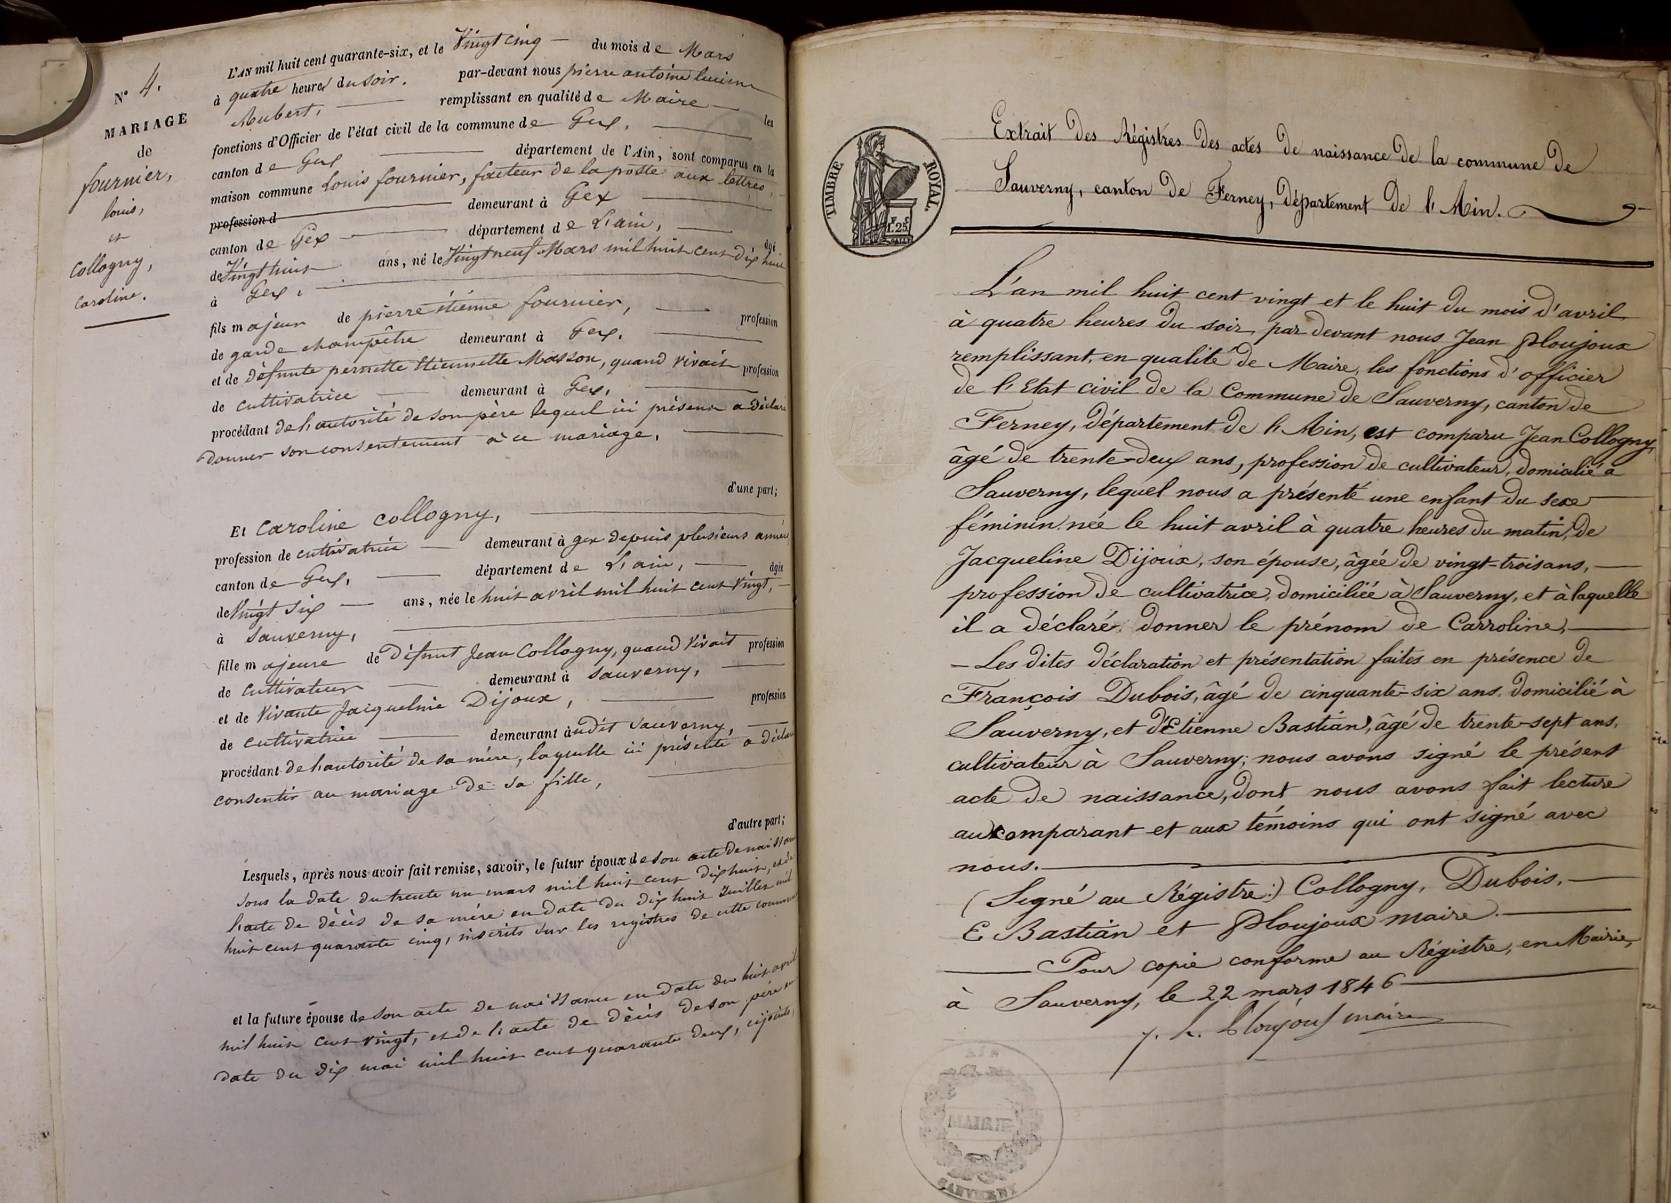 N° 4.
MARIAGE
de
fournier,
louis,
et
Collogny,
caroline.
L'AN mil huit cent quarante-six, et le Vingt cinq du mois de Mars
à quatre heures du soir. par-devant nous pierre antoine lucien
Aubert, remplissant en qualité de Maire les
fonctions d'Officier de l'état civil de la commune de Gex,
canton de Gex département de l'Ain, sont comparus en la
maison commune Louis fournier, facteur de la poste aux lettres,
profession d demeurant à Gex
canton de Gex département de L'ain, âgé
de Vingt huit ans, né le Vingt neuf Mars mil huit cent dix huit
à Gex,
fils majeur de pierre étiénne fournier, profession
de garde champêtre demeurant à Gex,
et de Défunte pernette Etiennette Masson, quand vivait profession
de cultivatrice demeurant à Gex,
procédant de l'autorité de son père lequel ici présent a déclaré
donner son consentement à ce mariage,
d'une part;
Et Caroline Collogny,
profession de cultivatrice demeurant à gex depuis plusieurs années
canton de Gex, département de L'ain, âgée
de Vingt six ans, née le huit avril mil huit cent Vingt,
à Sauverny,
fille majeure de Défunt Jean Collogny, quand Vivait profession
de Cultivateur demeurant à Sauverny,
et de Vivante Jacqueline Dijoux, profession
de cultivatrice demeurant à udit Sauverny
procédant de l'autorité de sa mère, laquelle ici présente a déclaré
consentir au mariage de sa fille,
d'autre part;
Lesquels, après nous avoir fait remise, savoir, le futur époux de son acte de naissance
sous la date du trente un mars mil huit cent dix huit, et de
l'acte de décès de sa mère en date du dix huit Juillet mil
huit cent quarante cinq, inscrits sur les registres de cette commune
et la future épouse de son acte de naissance en date du huit avril
mil huit cent Vingt, et de l'acte de décès de son père en
date du dix mai mil huit cent quarante deux, cijoints,
TIMBRE ROYAL.
Extrait des Régistres des actes de naissance de la commune de
Sauverny, canton de Ferney, Département de l'Ain.
L'an mil huit cent vingt et le huit du mois d'avril
à quatre heures du soir par devant nous Jean Ploujoux
remplissant en qualité de Maire, les fonctions d'officier
de l'Etat civil de la Commune de Sauverny, canton de
Ferney, Département de l'Ain, est comparu Jean Collogny,
âgé de trente-deux ans, profession de cultivateur, domicilié à
Sauverny, lequel nous a présenté une enfant du sexe
féminin née le huit avril à quatre heures du matin, de
Jacqueline Dijoux, son épouse, âgée de vingt-trois ans,
profession de cultivatrice, domiciliée à Sauverny, et à laquelle
il a déclaré donner le prénom de Carroline,
– Les dites déclaration et présentation faites en présence de
François Dubois, âgé de cinquante-six ans, domicilié à
Sauverny, et d'Etienne Bastian, âgé de trente-sept ans,
cultivateur à Sauverny; nous avons signé le présent
acte de naissance, dont nous avons fait lecture
au comparant et aux témoins qui ont signé avec
nous.
(Signé au Régistre:) Collogny, Dubois,
E Bastian et Ploujoux maire.
Pour copie conforme au Régistre, en Mairie,
à Sauverny, le 22 mars 1846
Ploujoux maire
MAIRIE
SAUVERNY